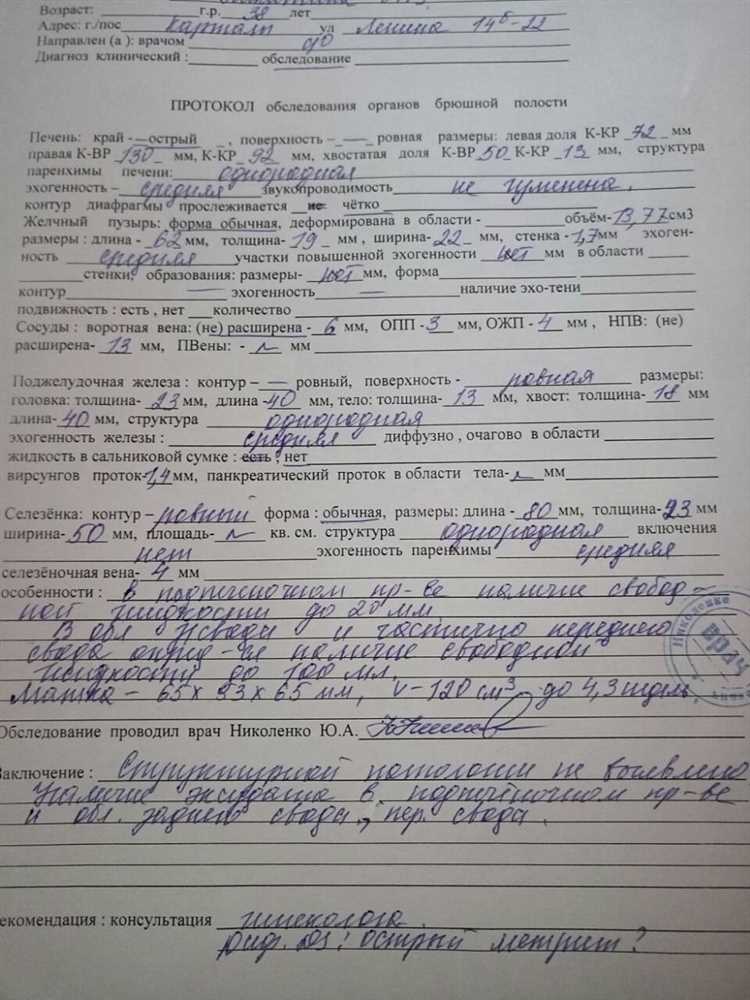 Возраст: г.р. 38 лет
Адрес: г./пос Карталы ул Ленина 14б-22
Направлен (а ): врачом
Диагноз клинический : обследование
ПРОТОКОЛ обследования органов брюшной полости
Печень: край - острый , поверхность – ровная размеры: левая доля К-КР 72 мм
правая К-ВР 130 мм, К-КР 92 мм, хвостатая доля К-ВР 50 К-КР 13 мм, структура
паренхимы печени: однородная
эхогенность – средняя звукопроводимость не изменена.
контур диафрагмы прослеживается не чётко
Желчный пузырь: форма обычная, деформирована в области - объём- 13,77 см3
размеры : длина - 62 мм, толщина- 19 мм , ширина- 22 мм, стенка - 1,7 мм эхоген-
ность средняя участки повышенной эхогенности нет мм в области
стенки; образования: размеры- нет мм, форма
контур эхогенность наличие эхо-тени
подвижность : есть , нет количество
Сосуды : воротная вена: (не) расширена - 6 мм, ОПП - 3 мм, ОЖП - 4 мм , НПВ: (не)
расширена- 13 мм, ПВены: - мм
Поджелудочная железа : контур – ровный, поверхность - ровная размеры:
головка: толщина- 23 мм, длина - 40 мм, тело: толщина- 13 мм, хвост: толщина- 18 мм
длина- 40 мм, структура однородная
эхогенность железы : средняя диффузно , очагово в области
жидкость в сальниковой сумке : есть , нет
вирсунгов проток- 1,4 мм, панкреатический проток в области тела- мм
Селезёнка: контур – ровный форма : обычная, размеры: длина - 80 мм, толщина- 23 мм
ширина- 50 мм, площадь- кв. см. структура однородная включения
нет эхогенность паренхимы средняя
селезёночная вена- 4 мм
особенности : в подпечёночном пр-ве наличие свобод-
ной жидкости до 20 мм.
В обл. и частично переднего
свода наличие свободной
жидкости до 100 мл.
Матка – 65 х 53 х 65 мм, v – 120 см3 до 4,3
Николенко
врач
Обследование проводил врач Николенко Ю.А.
Заключение : Структурной патологии не выявлено
Наличие экссудата в подпечёночном пр-ве
и обл. заднего свода, пер. свода.
екомендация : консультация гинеколога.
диф. DS: острый метрит?